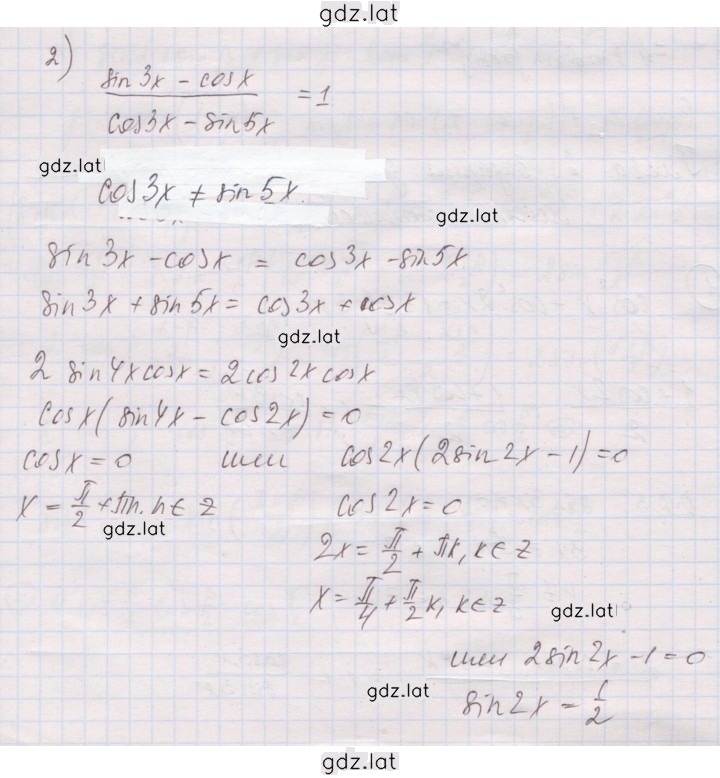 gdz.lat
2)
(sin 3x - cos x) / (cos 3x - sin 5x) = 1
gdz.lat
cos 3x ≠ sin 5x.
gdz.lat
sin 3x - cos x = cos 3x - sin 5x
sin 3x + sin 5x = cos 3x + cos x
gdz.lat
2 sin 4x cos x = 2 cos 2x cos x
cos x (sin 4x - cos 2x) = 0
cos x = 0 или cos 2x (2 sin 2x - 1) = 0
x = π/2 + πn, n ∈ Z cos 2x = 0
gdz.lat
2x = π/2 + πk, k ∈ Z
x = π/4 + π/2 k, k ∈ Z
gdz.lat
или 2 sin 2x - 1 = 0
gdz.lat
sin 2x = 1/2
gdz.lat